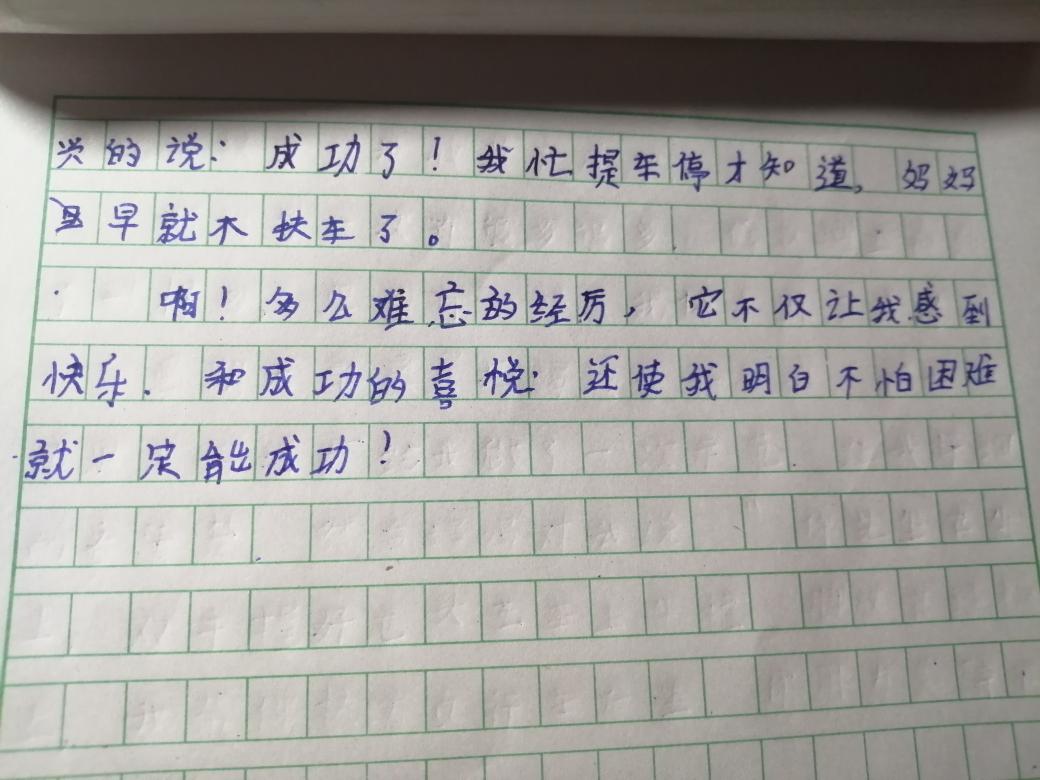 兴的说：成功了！我忙提车停才知道，妈妈
早就不扶车了。
啊！多么难忘的经历，它不仅让我感到
快乐．和成功的喜悦．还使我明白不怕困难
就一定能成功！